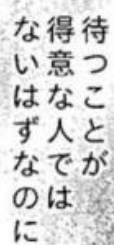 待つことが
得意な人では
ないはずなのに